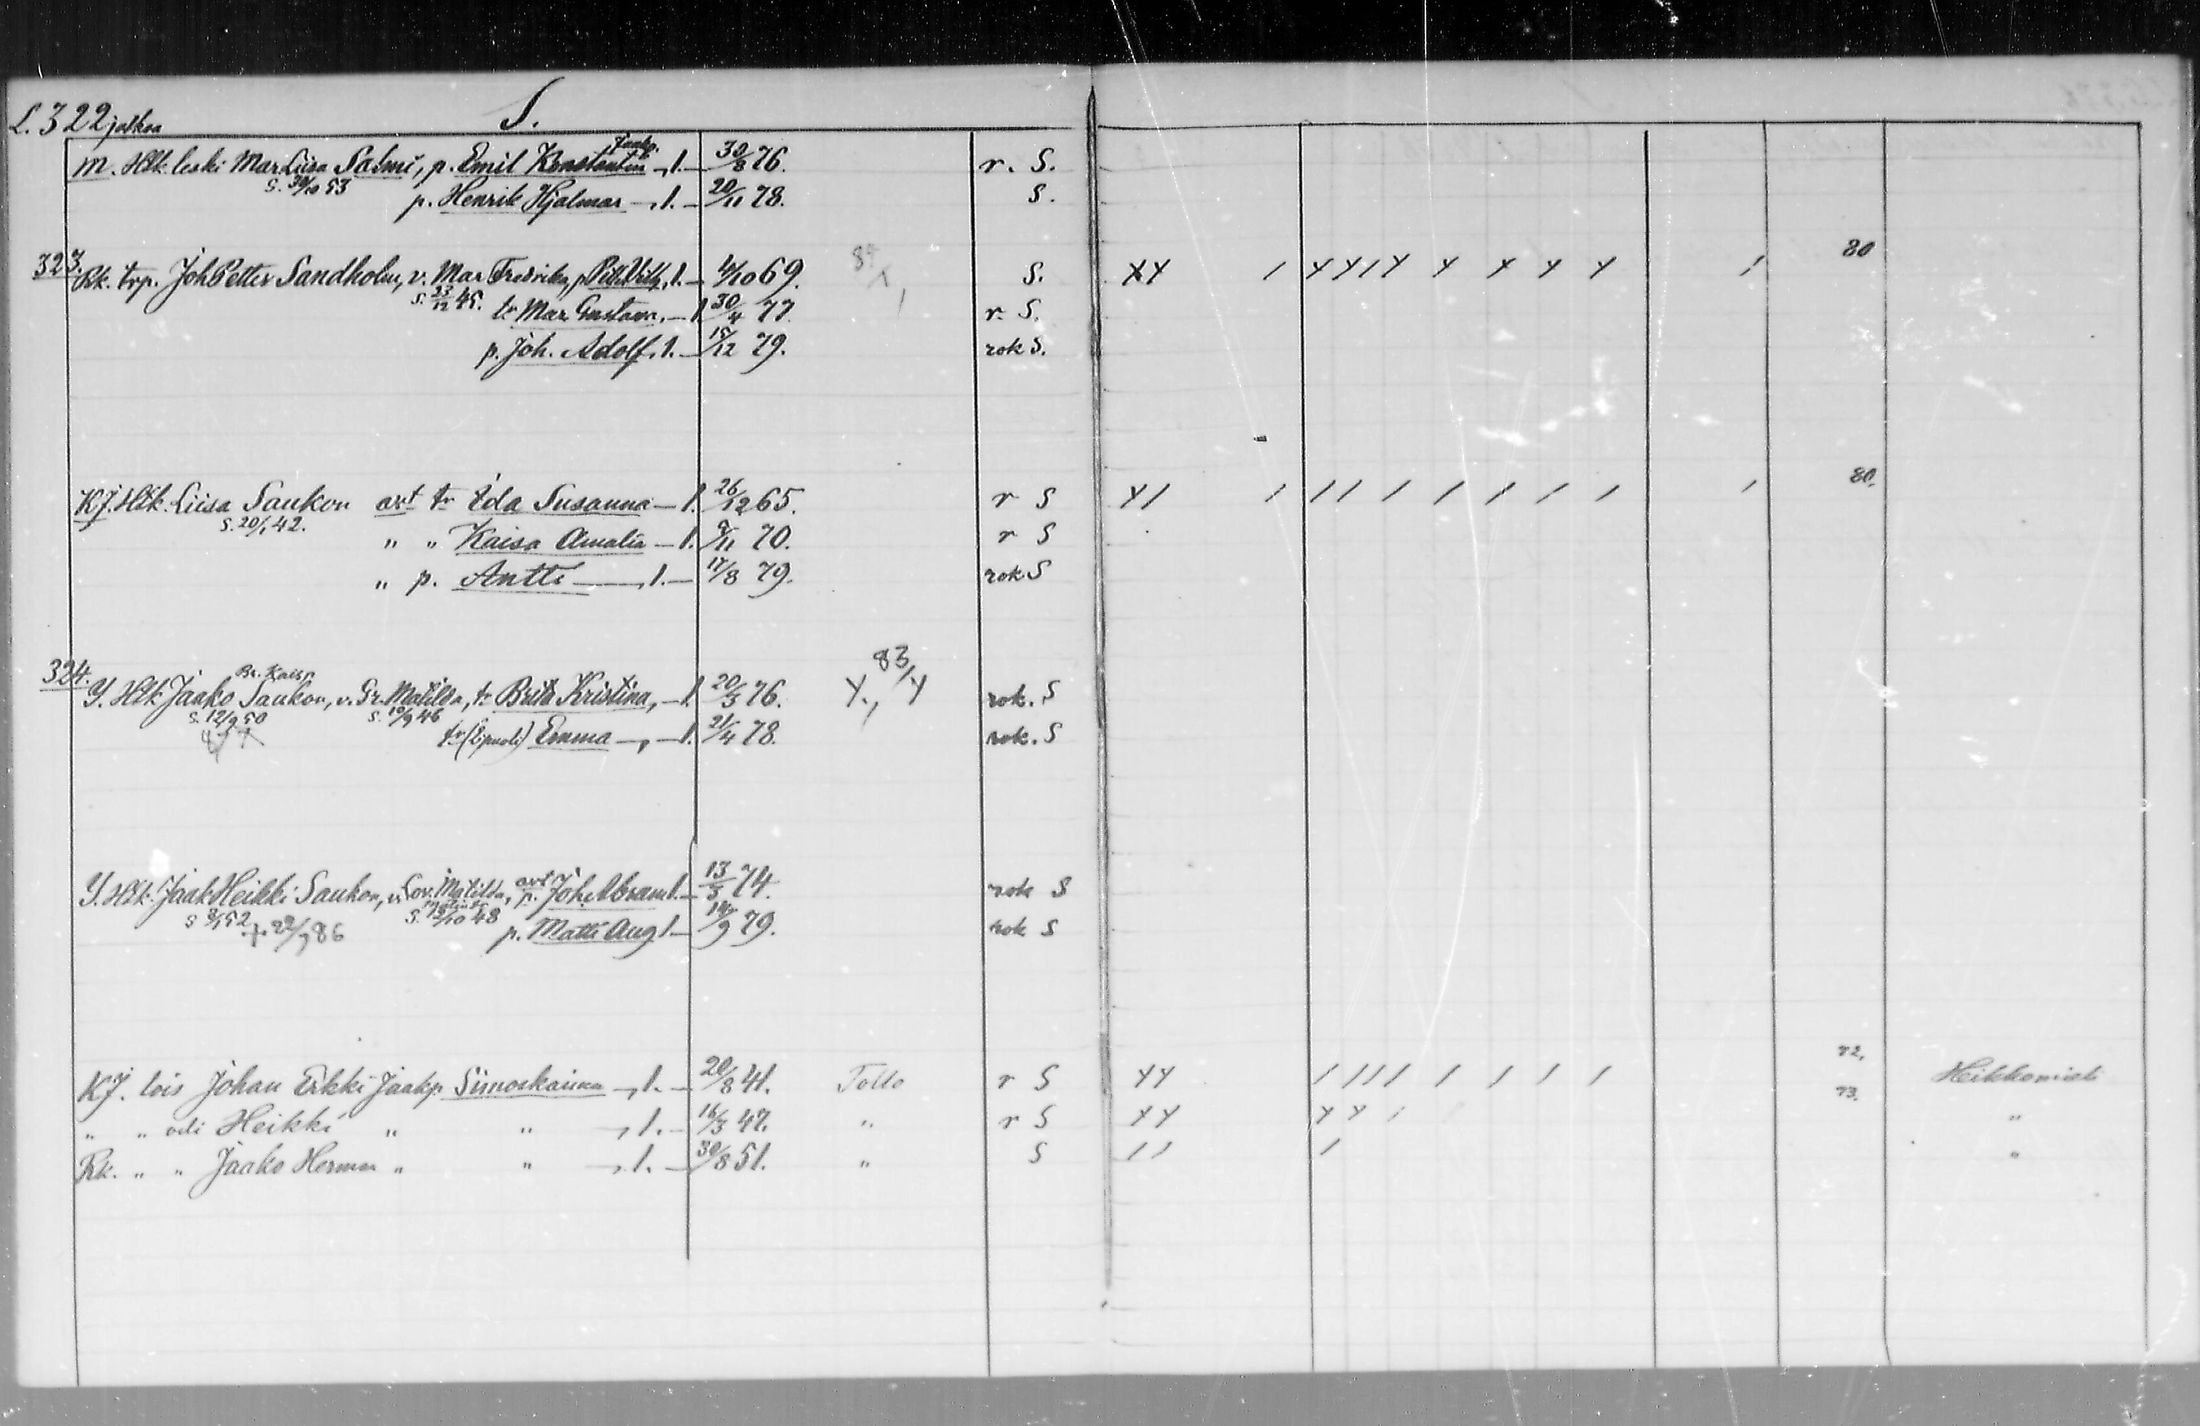 L. 322 jatkoa S.
Jaakp.
m. Htk. leski Mar Liisa Salmi, p. Emil Konstantin, l. — 30/8 76. r. S.
s. 30/10 53
p. Henrik Hjalmar —, l. — 20/11 78. S.
323. Rk. trp. Joh Petter Sandholm, v. Mar Fredrika, p. Pett Vilh, l. — 4/10 69. S. YY / YY/Y Y Y Y Y / 80
s. 23/12 45. tr Mar Gustava, — l. 30/4 77. r. S.
p. Joh. Adolf, l. — 15/12 79. rok S.
KJ. Htk. Liisa Saukon avt tr Ida Susanna — l. 26/12 65. r S Y/ / // / / / / / / 80.
s. 20/1 42.
" " Kaisa Amalia — l. 9/11 70. r S
" p. Antti —, l. — 17/8 79. rok S
Br. Kaisa 83
324. Y. Htk Jaako Saukon, v. Gr. Matilda, tr Brita Kristina, — l. 20/3 76. Y., / Y rok. S
s. 12/9 50 s. 19/9 46
tr (äpuoli) Emma —, — l. 21/4 78. rok. S
Y. Htk. Jaak Heikki Saukon, v. Lov. Matilda, avt p. Joh. Abram l. — 13/5 74. rok S
s. 8/1 52 s. 13/10 48
+. 22/9 86 p. Matti Aug l — 14/9 79. rok S
KJ. lois Johan Erkki Jaakp Simoskainen, l. — 20/8 41. Tollo r S YY / / / / / / / / 82. Heikkoniat
" " veli Heikki " " , l. — 16/3 47. " r S YY Y Y / 73. "
Rk. " " Jaako Herman " " , l. — 30/8 51. " S // / "